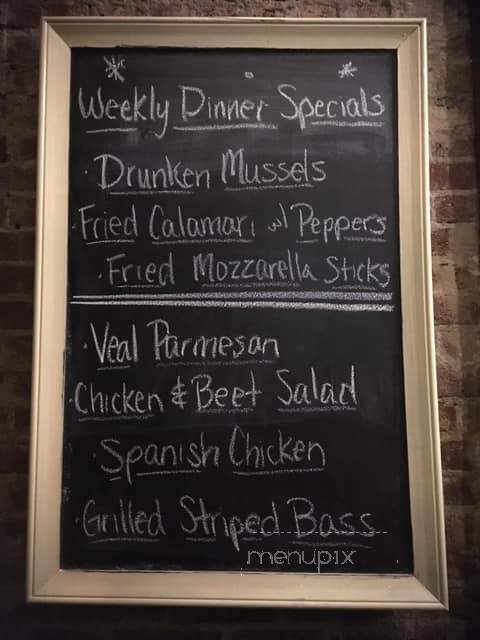 Weekly Dinner Specials
· Drunken Mussels
· Fried Calamari w/ Peppers
· Fried Mozzarella Sticks
· Veal Parmesan
· Chicken & Beet Salad
· Spanish Chicken
· Grilled Striped Bass
menupix